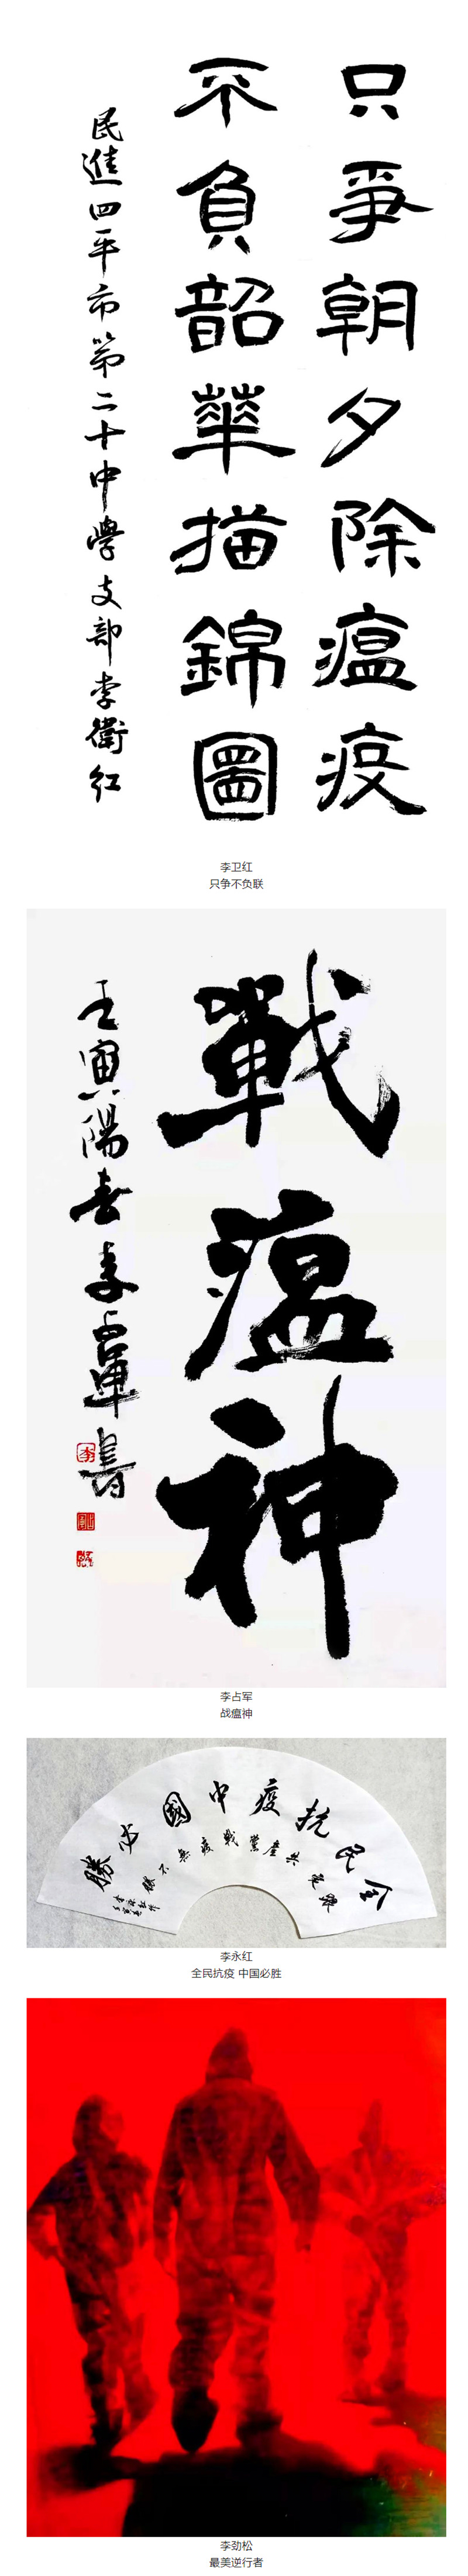 只爭朝夕除瘟疫
不負韶華描錦圖
民進四平市第二十中學支部李衛紅
李卫红
只争不负联
戰瘟神
壬寅陽春李占軍書
李
李占军
战瘟神
全民抗疫中國必勝
李永红
全民抗疫 中国必胜
李劲松
最美逆行者